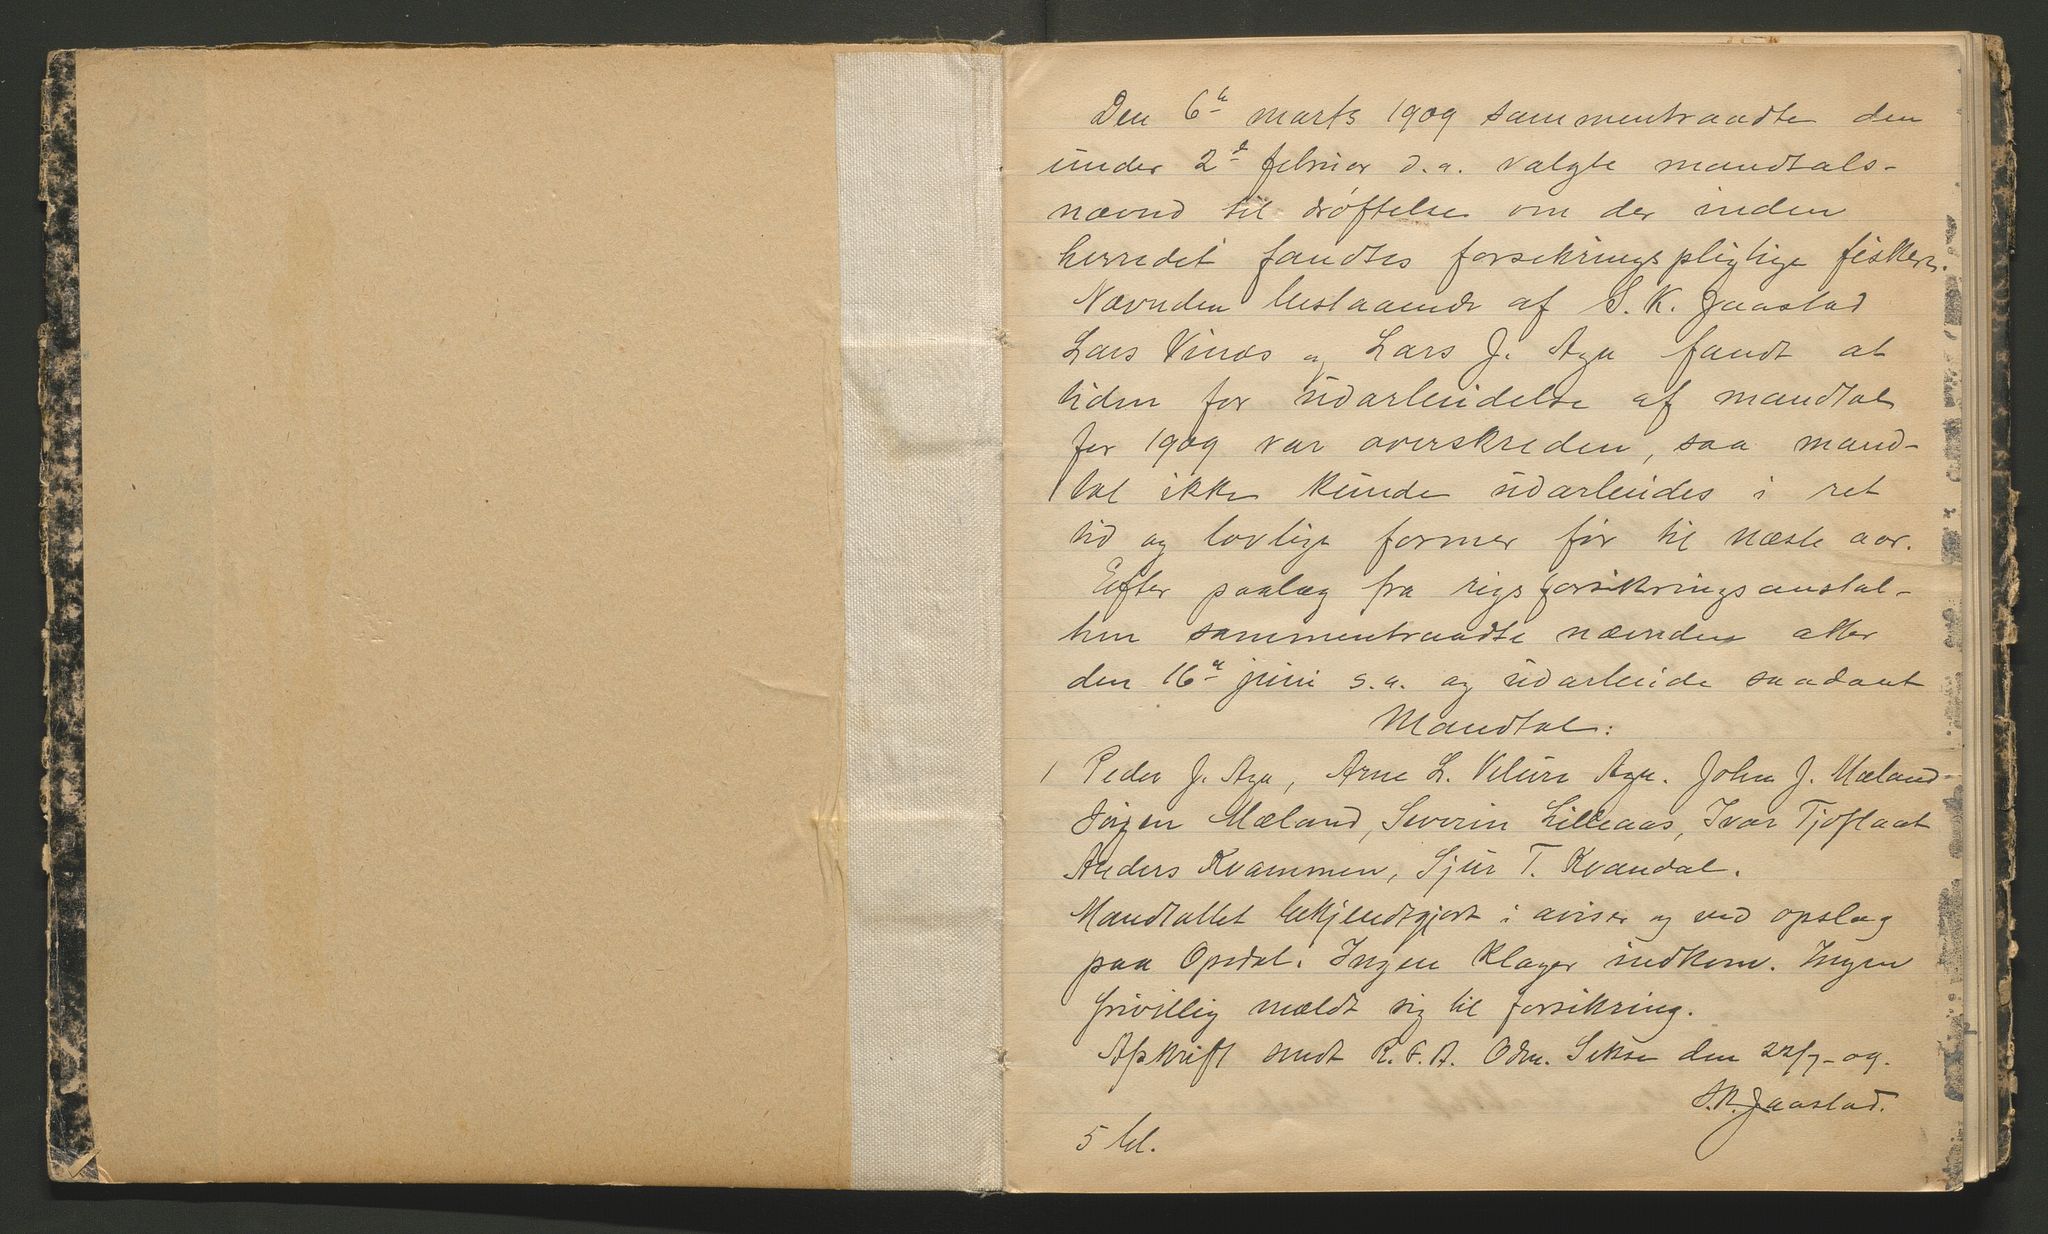 Den 6te marts 1909 sammentraadte den
under 2d februar d.a. valgte mandtals-
nævnd til drøftelse om der inden
herredet fandtes forsekringspligtige fiskere.
Nævnden bestaaende af S. K. Jaastad
Lars Vinæs og Lars J. Aga fandt at
tiden for udarbeidelse af mandtal
for 1909 var overskreden, saa mand-
tal ikke kunde udarbeides i ret
tid og lovlige former før til næste aar.
Efter paalæg fra rigsforsikringsanstal-
ten sammentraadte nævnden atter
den 16de juni s.a. og udarbeide saadant
Mandtal:
1 Peder J. Aga, Arne L. Velure Aga. John J. Mæland
Jørgen Mæland, Severin Lilleaas, Ivar Tjoflaat
Anders Kvammen, Sjur T. Kvandal.
Mandtallet bekjendtgjort i aviser og ved opslag
paa Opedal. Ingen klager indkom. Ingen
frivillig mældt sig til forsikring.
Afskrift sendt R. F. A. Odm. Sekse den 22/7-09.
S.K. Jaastad.
5 kl.